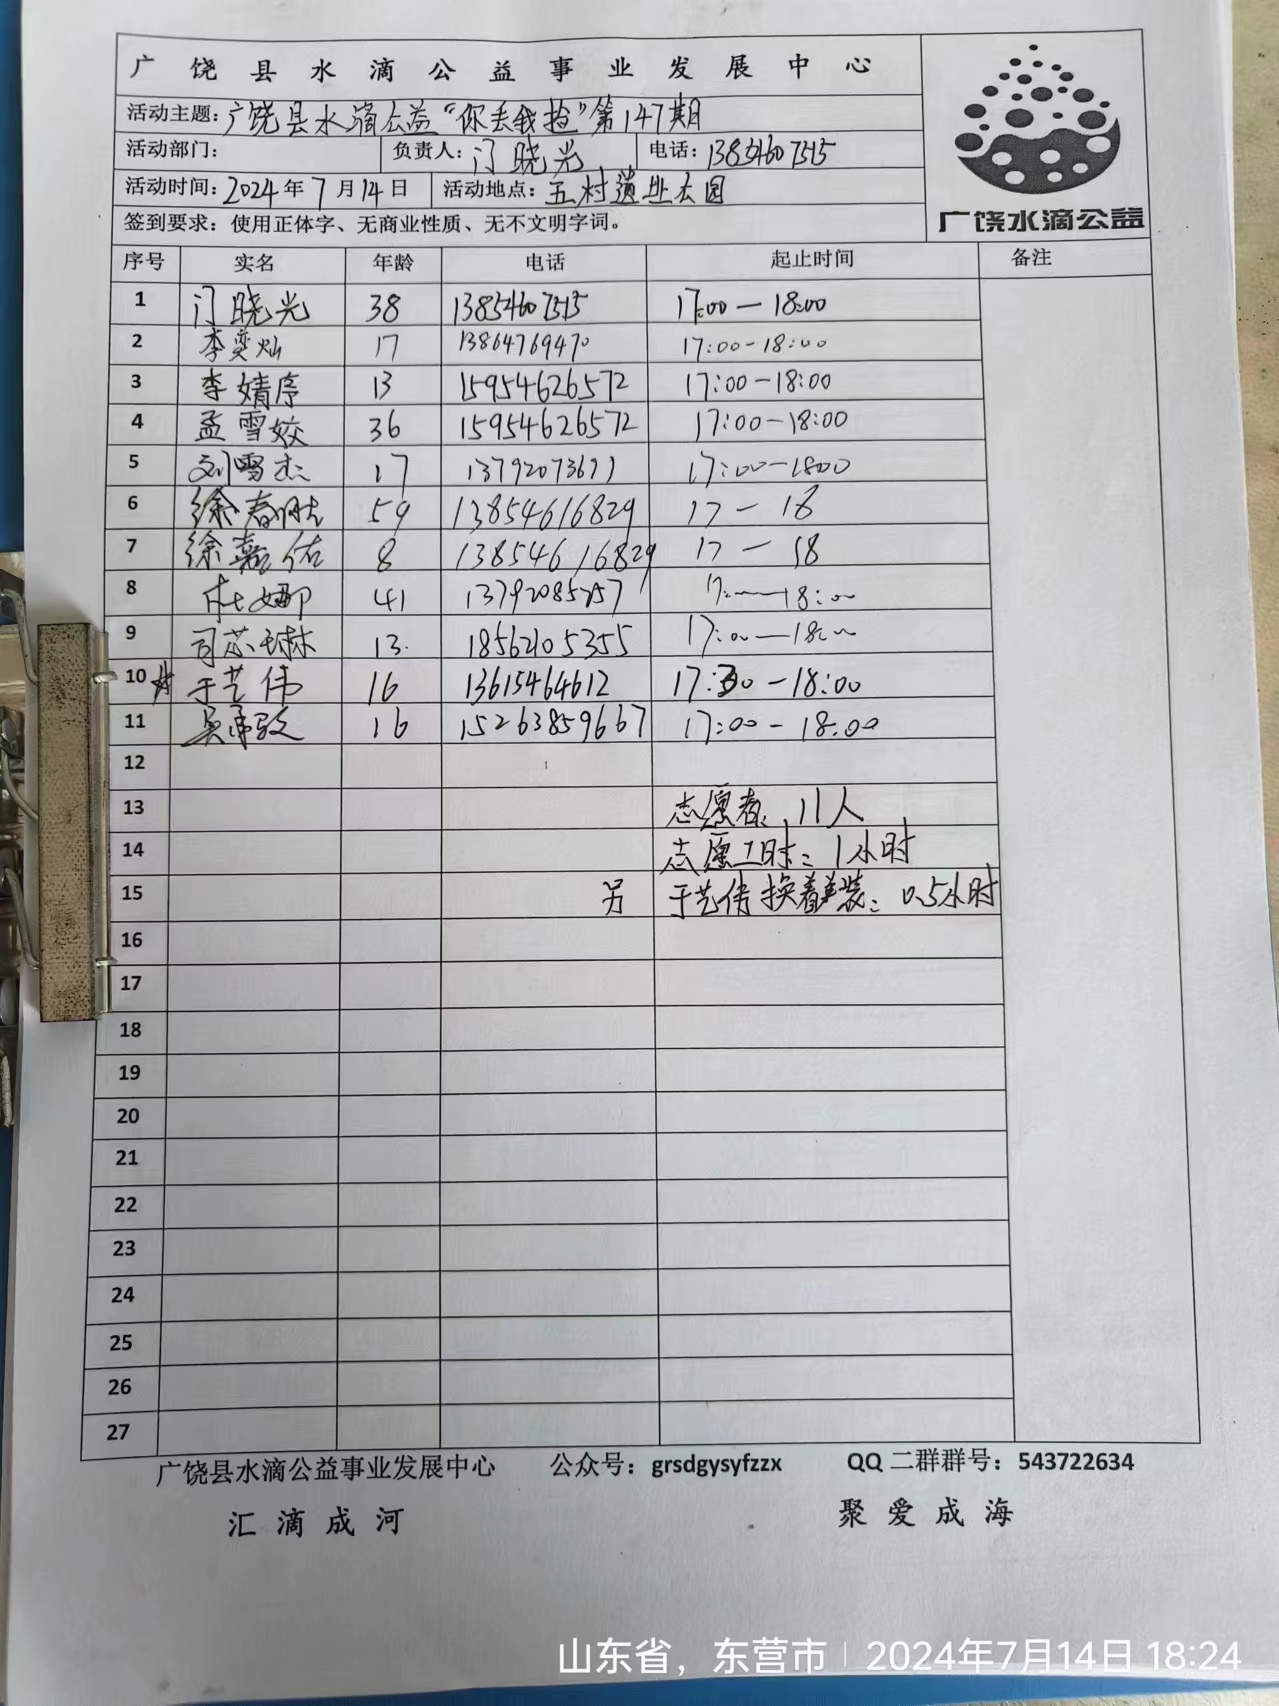 广饶县水滴公益事业发展中心
活动主题：广饶县水滴公益“你丢我捡”第147期
活动部门： 负责人：门晓光 电话：13854607515
活动时间：2024年7月14日 活动地点：五村遗址公园
签到要求：使用正体字、无商业性质、无不文明字词。
广饶水滴公益
序号 实名 年龄 电话 起止时间 备注
1 门晓光 38 13854607515 17:00—18:00
2 李奕灿 17 13864769470 17:00-18:00
3 李婧序 13 15954626572 17:00-18:00
4 孟雪姣 36 15954626572 17:00-18:00
5 刘雪杰 17 13792073677 17:00-1800
6 徐春 59 13854616829 17-18
7 徐嘉佑 8 13854616829 17-18
8 杜娜 41 18:00
9 司芯琳 13. 18562105355 17:00—18:00
10 ☆ 于艺伟 16 13615464612 17:30-18:00
11 吴 16 15263859667 17:00-18:00
12
13 志愿者：11人
14 志愿工时：1小时
15 另 于艺伟换着装：0.5小时
16
17
18
19
20
21
22
23
24
25
26
27
广饶县水滴公益事业发展中心 公众号：grsdgysyfzzx QQ二群群号：543722634
汇滴成河 聚爱成海
山东省，东营市 | 2024年7月14日 18:24